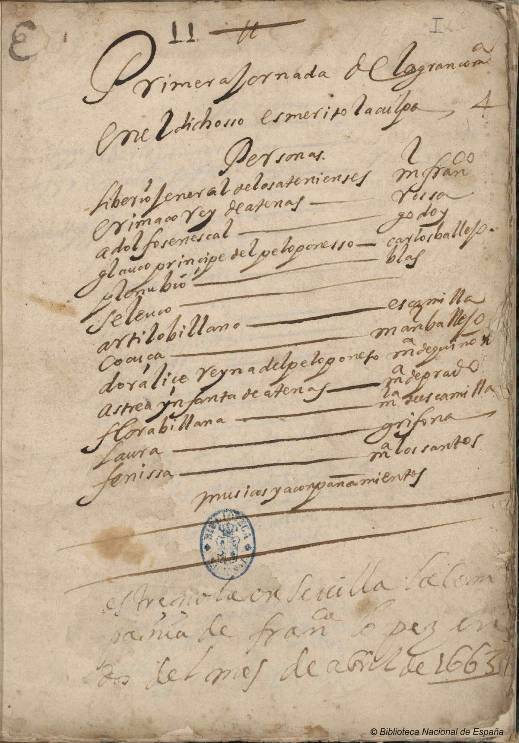 11 I
Primera Jornada de la gran com<sup>a</sup>
en el dichosso es merito la culpa 4
Personas.
liberio general de los atenienses m fran<sup>co</sup>
Crimaco rey de atenas rossa
adolfo senescal godoy
glauco principe del peloponesso carlos ballejo.
plonubio blas
seleuco
artilo billano escamilla
Coouca man ballejo
doralice reyna del peloponeto m<sup>a</sup> de quinones
astrea ynfanta de atenas m<sup>a</sup> de prado
flora billana m<sup>la</sup> escamilla
Laura grifona
fenissa m<sup>a</sup> los santos
musicas y aconpañamientos
BIBLIOTECA
estrenola en Sevilla la com
pañia de fran<sup>co</sup> lopez en
dos del mes de abril de 1663
© Biblioteca Nacional de España